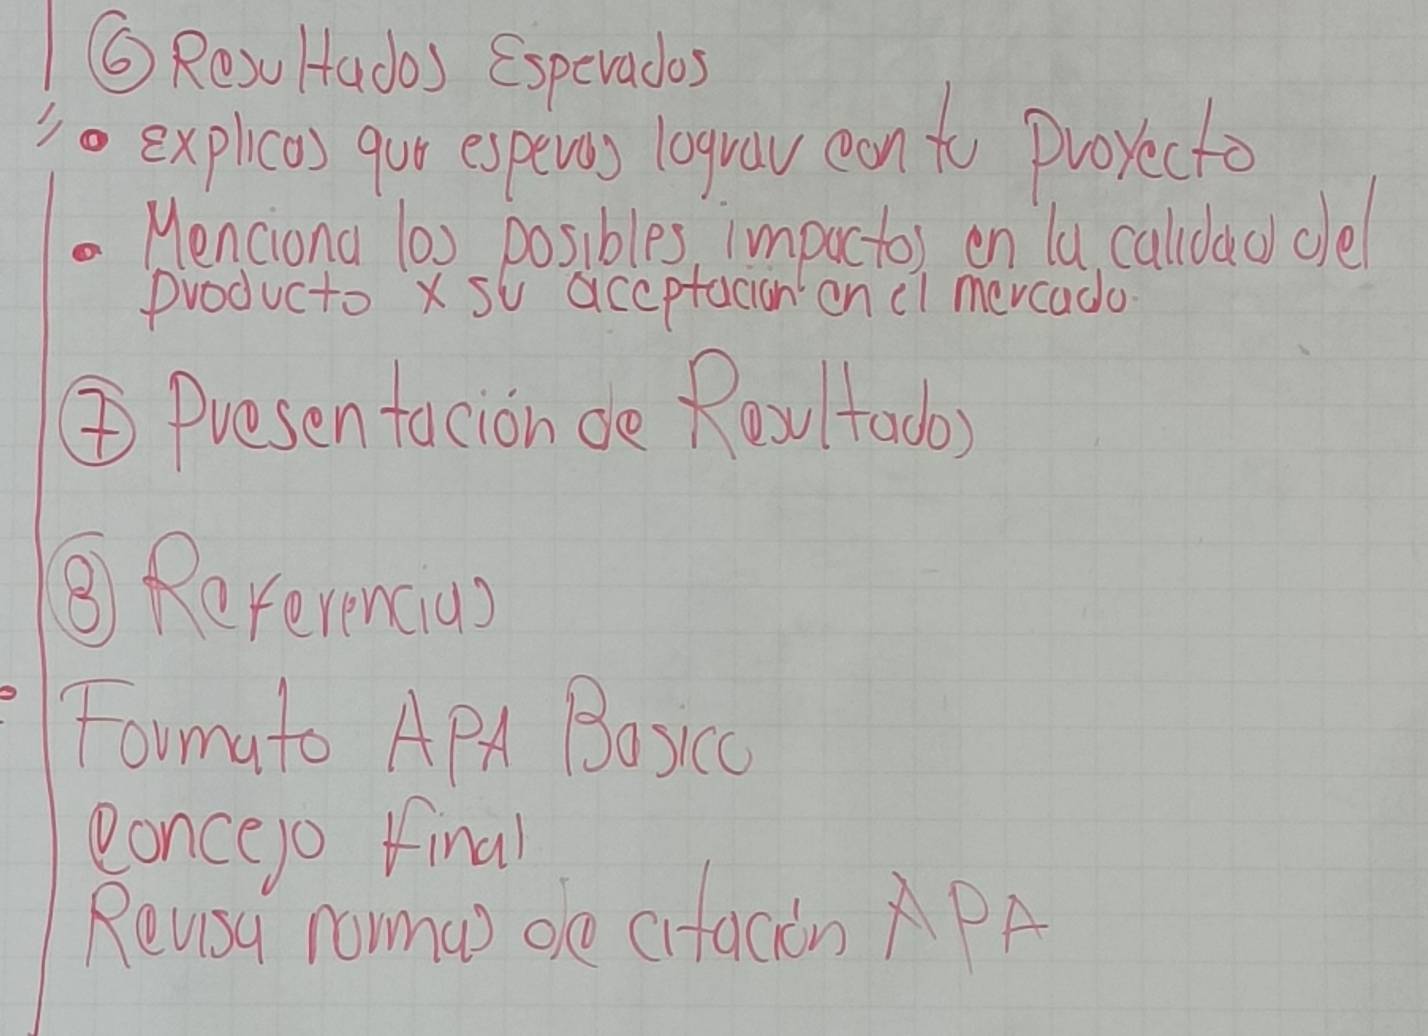 ⑥ Resultados Esperados
• Explicas que esperas lograr con tu proyecto
• Menciona los posibles impactos en la calidad del
producto y su acceptación en el mercado.
⑦ Presentación de Resultados
⑧ Referencias
Formato APA Basico
Concejo final
Revisa normas de citación APA